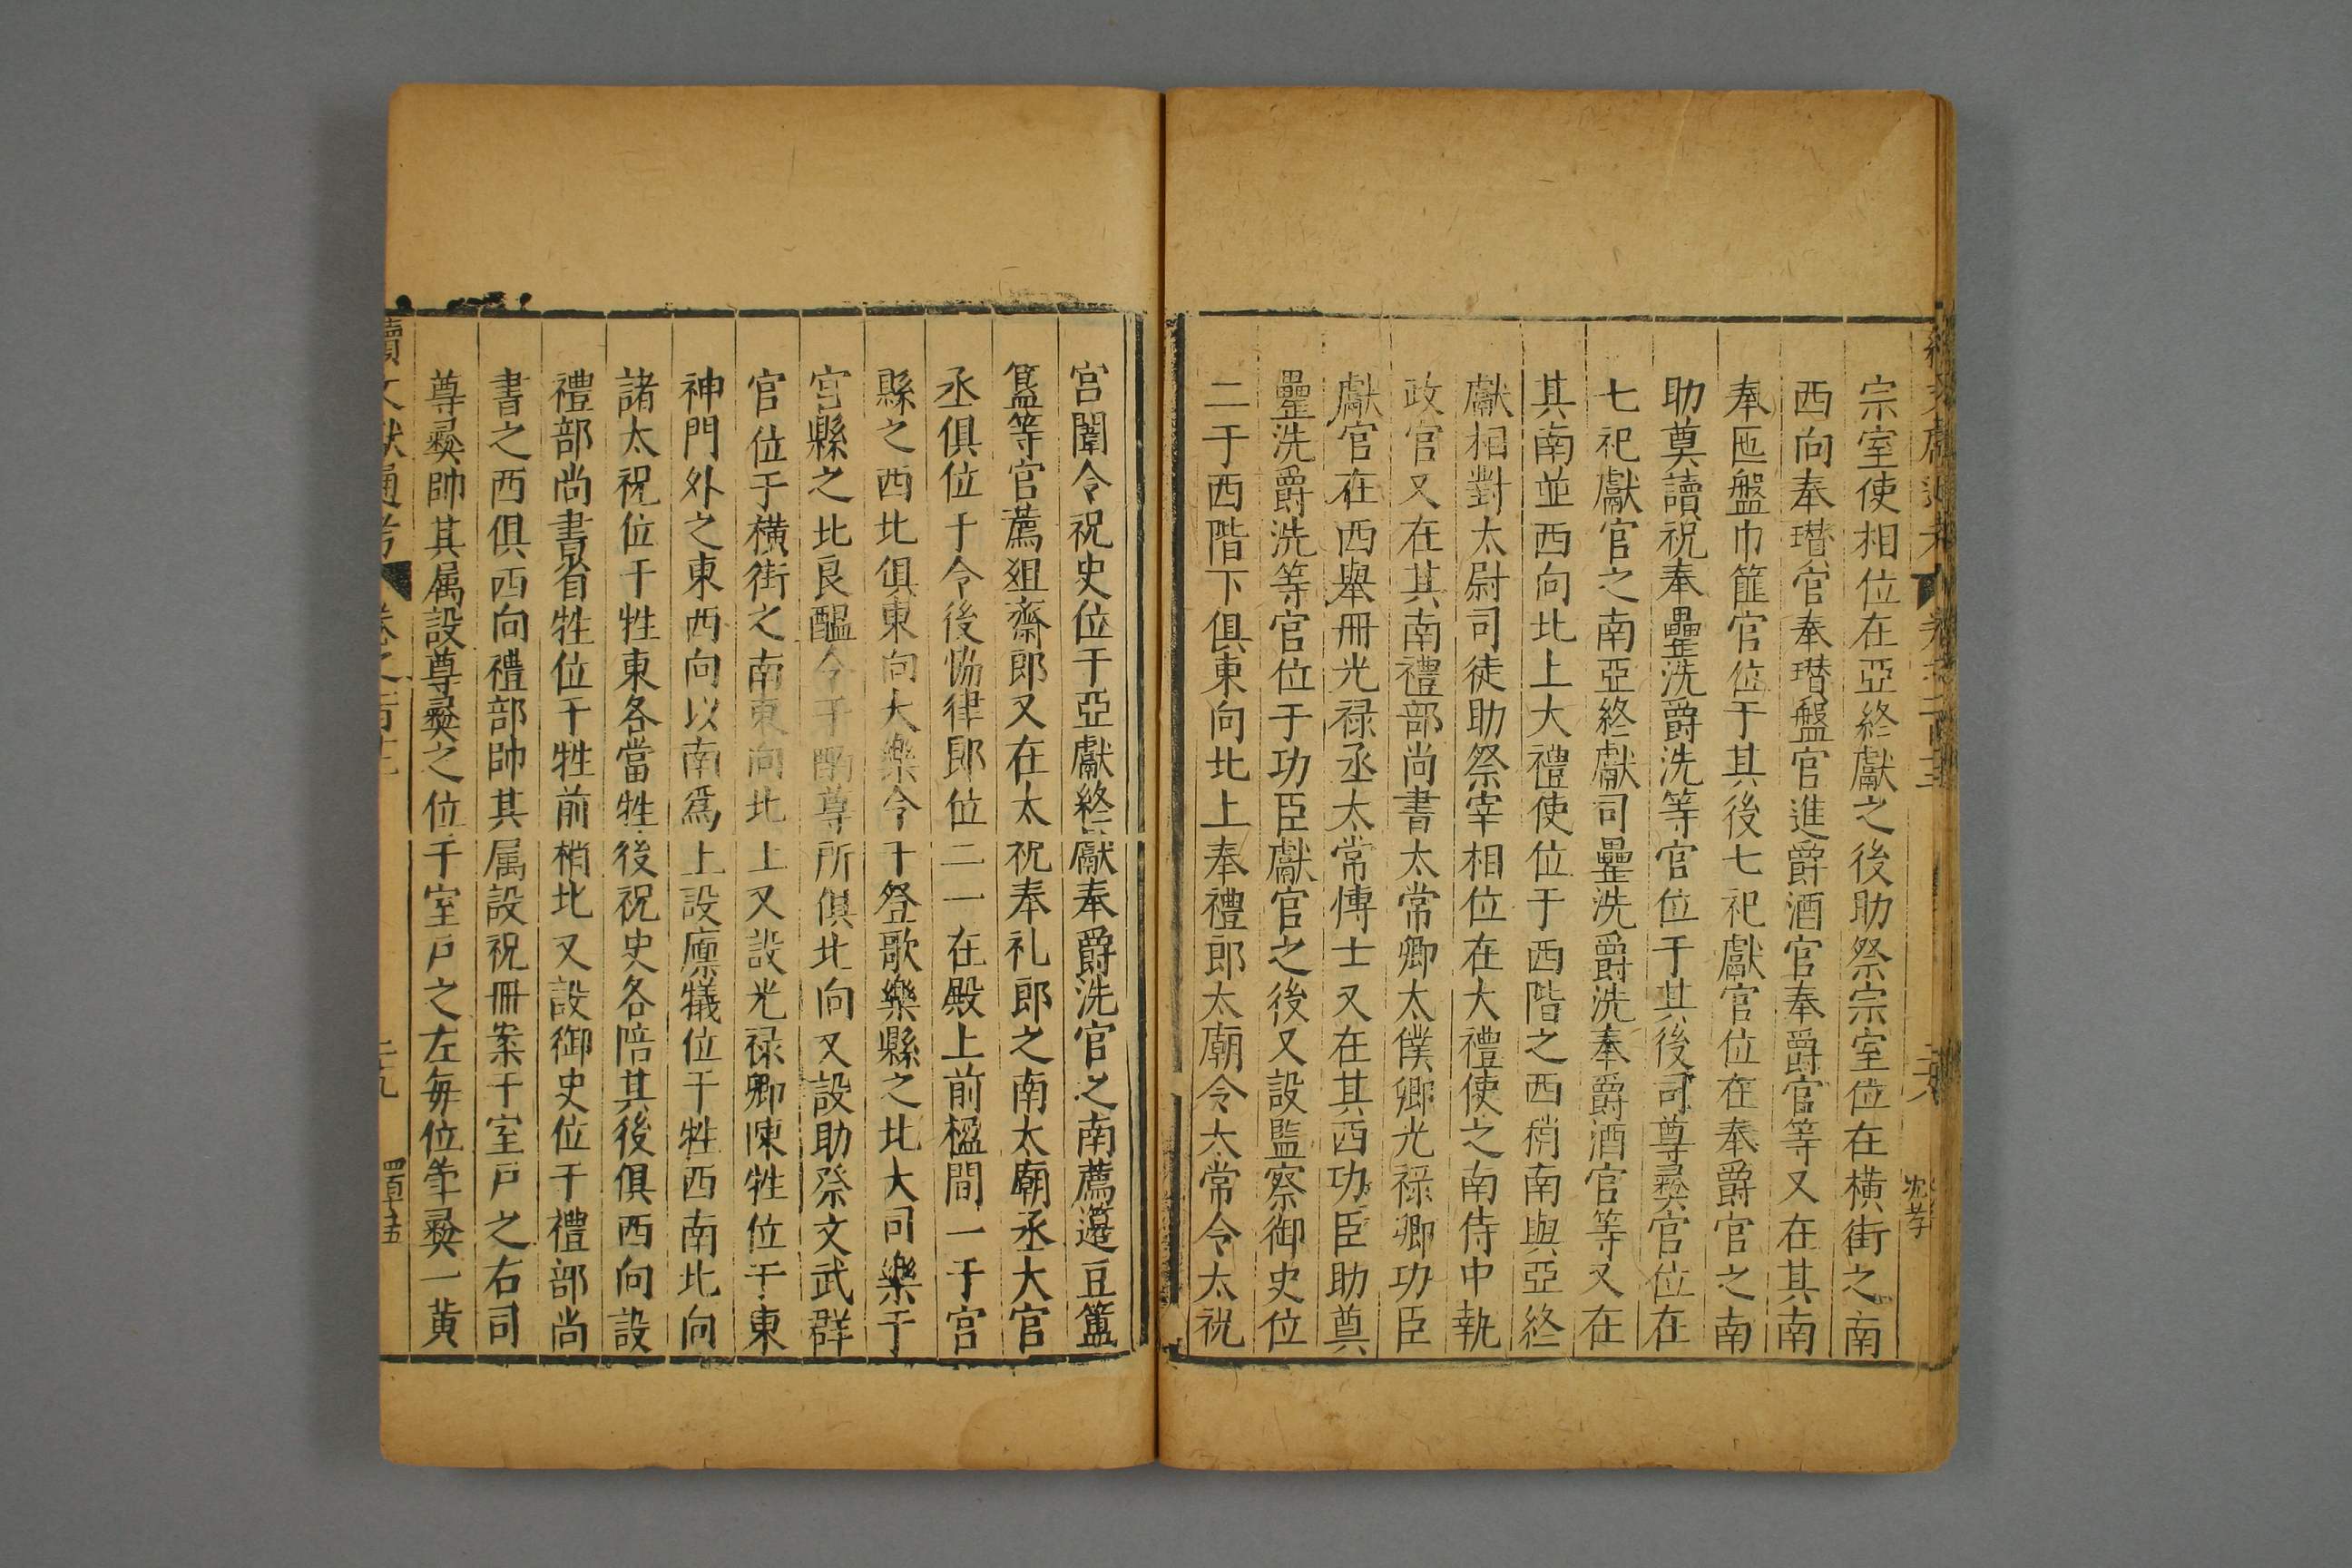 宗室使相位在亞終獻之後助祭宗室位在橫街之南
西向奉瓚官奉瓚盤官進爵酒官奉爵官等又在其南
奉匜盤巾篚官位于其後七祀獻官位在奉爵官之南
助奠讀祝奉罍洗爵洗等官位于其後司尊彝官位在
七祀獻官之南亞終獻司罍洗爵洗奉爵酒官等又在
其南並西向北上大禮使位于西階之西稍南與亞終
獻相對太尉司徒助祭宰相位在大禮使之南侍中執
政官又在其南禮部尚書太常卿太僕卿光禄卿功臣
獻官在西舉冊光禄丞太常博士又在其西功臣助奠
罍洗爵洗等官位于功臣獻官之後又設監察御史位
二于西階下俱東向北上奉禮郎太廟令太常令太祝
宮闈令祝史位于亞獻終獻奉爵洗官之南薦籩豆簠
簋等官薦爼齋郎又在太祝奉礼郎之南太廟丞大官
丞俱位于令後恊律郎位二一在殿上前楹間一于宮
縣之西北俱東向大樂令于登歌樂縣之北大司樂于
宮縣之北良醖令于酌尊所俱北向又設助祭文武群
官位于橫街之南東向北上又設光禄卿陳牲位于東
神門外之東西向以南爲上設廩犧位于牲西南北向
諸太祝位于牲東各當牲後祝史各陪其後俱西向設
禮部尚書省牲位于牲前稍北又設御史位于禮部尚
書之西俱西向禮部帥其属設祝冊案于室戸之右司
尊彝帥其属設尊彝之位于室戸之左每位斝彝一黄
續文獻通考 卷之百 二九